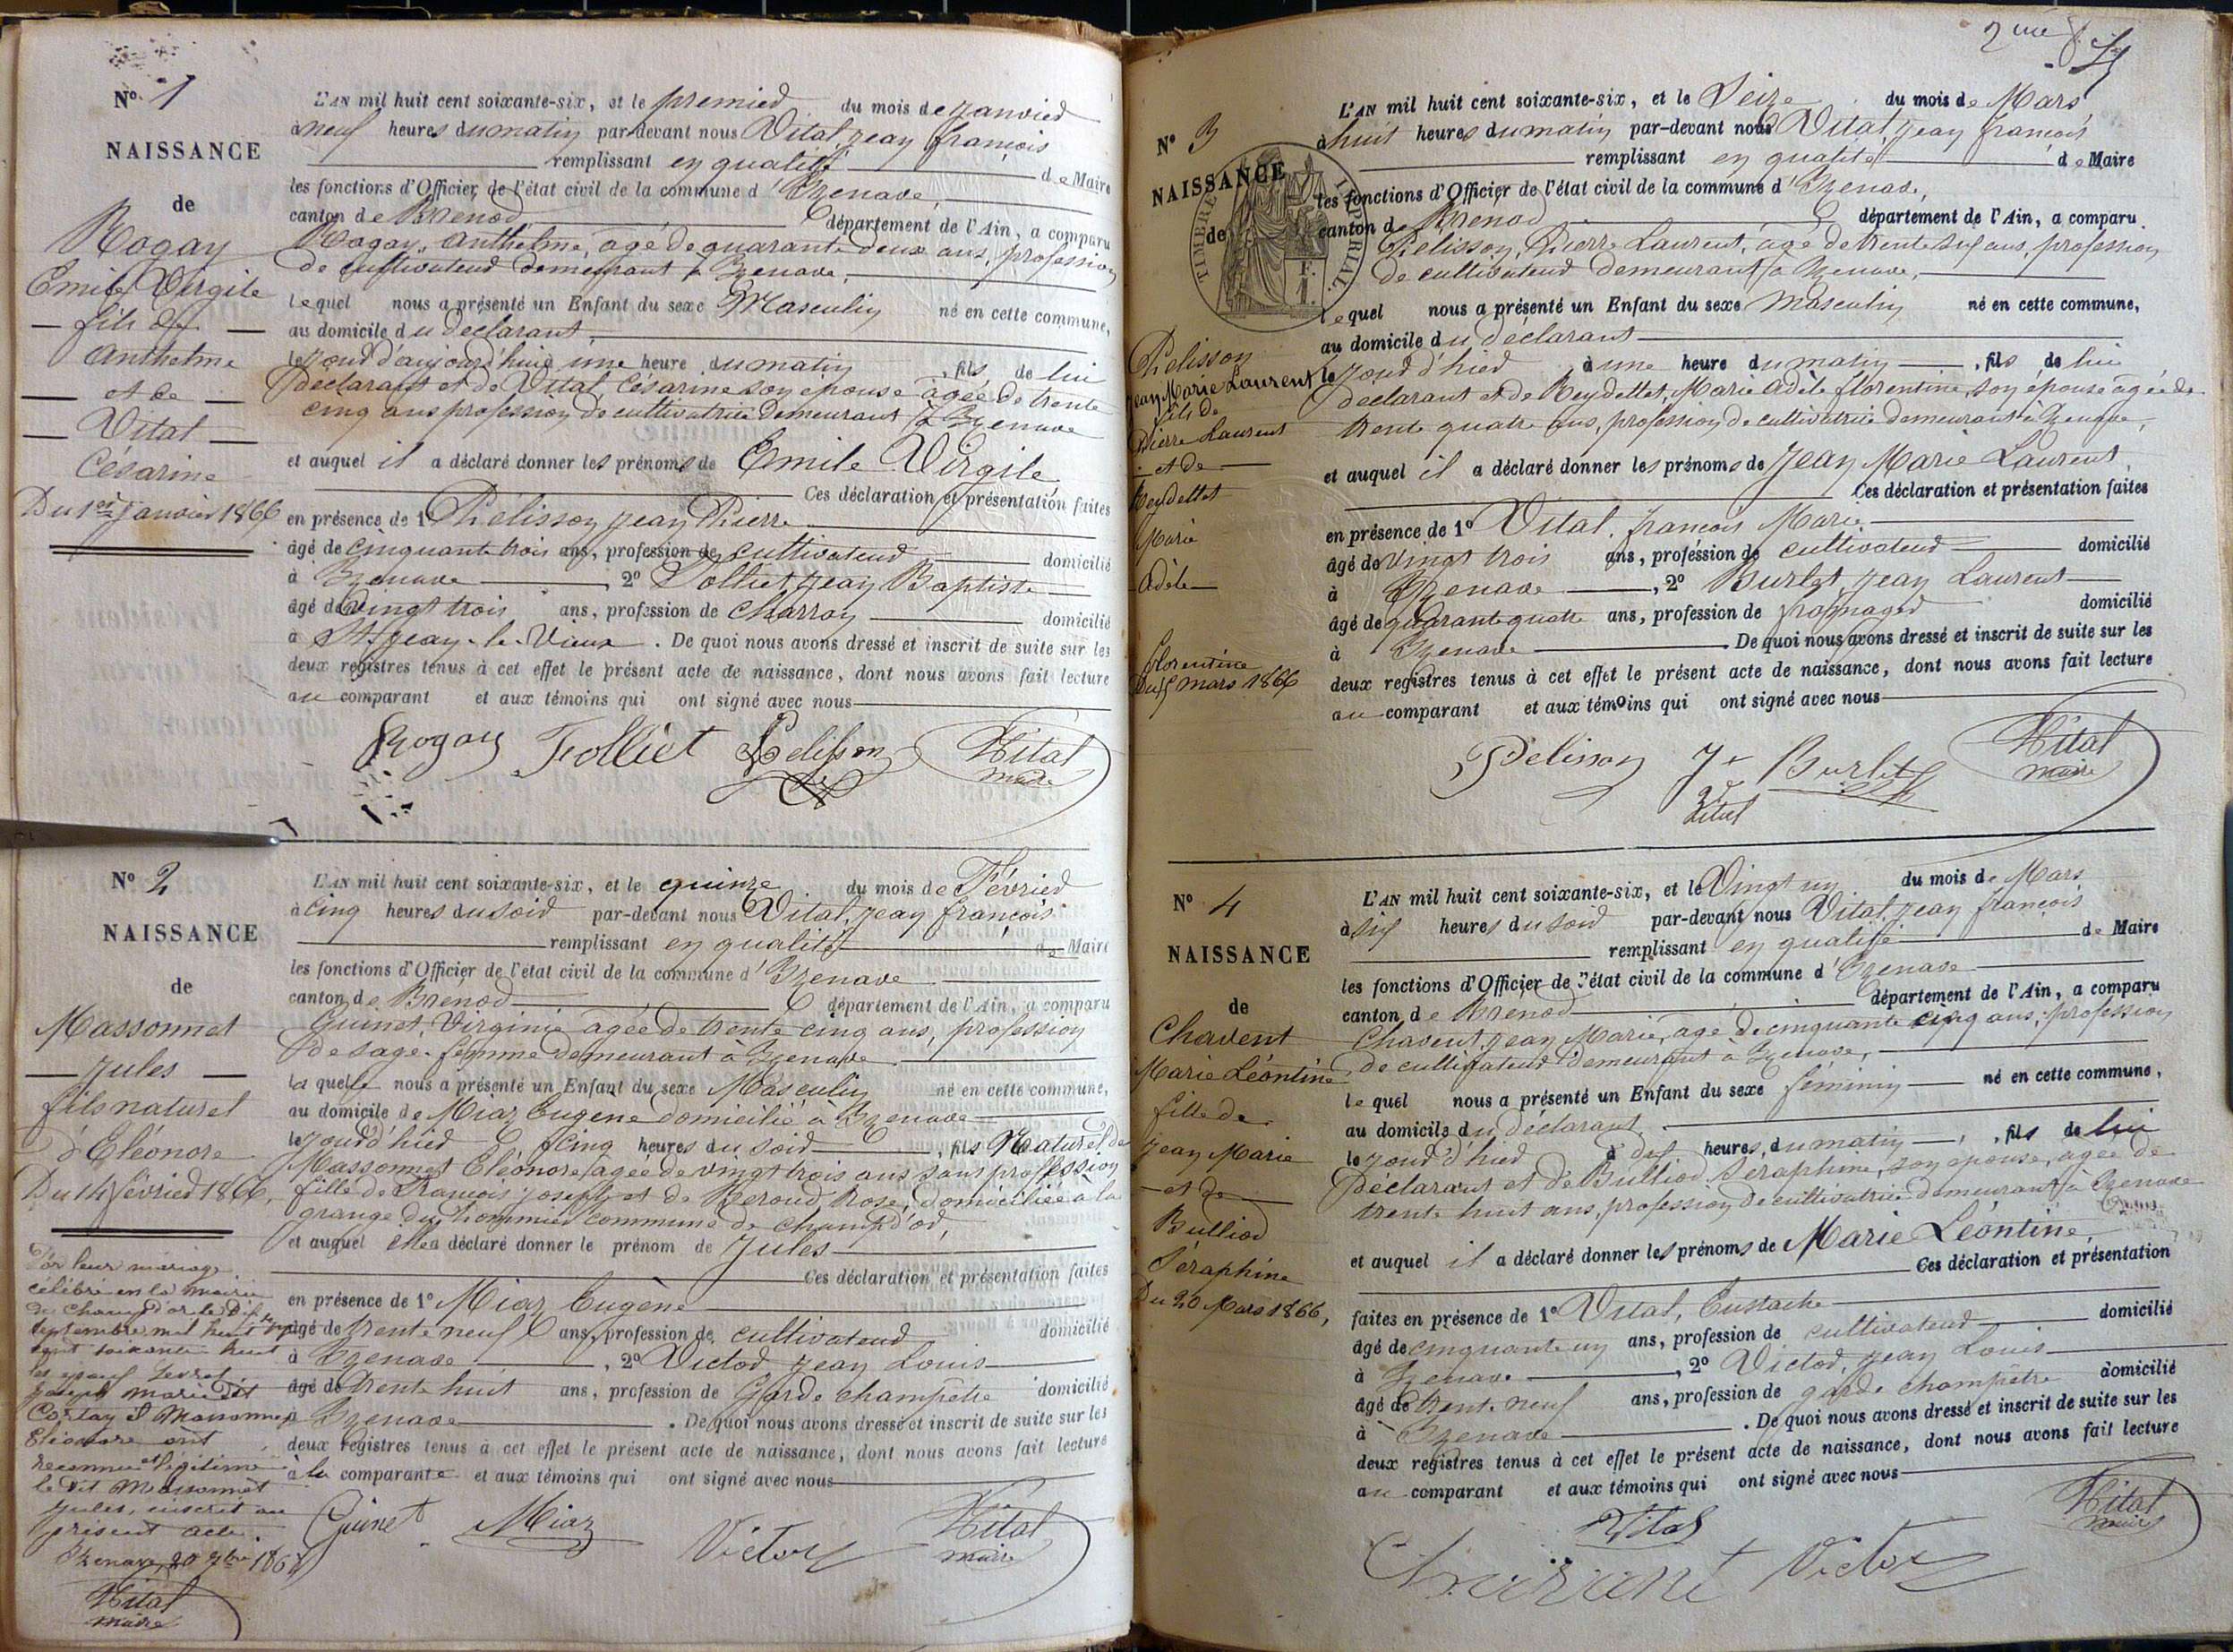 N° 1
NAISSANCE
de
Rogay
Emile Virgile
fils de
Anthelme
et de
Vital
Césarine
Du 1er Janvier 1866
L'AN mil huit cent soixante-six, et le premier du mois de Janvier
à neuf heures du matin par-devant nous Vital, Jean François
remplissant en qualité de Maire
les fonctions d'Officier de l'état civil de la commune d'Izenave,
canton de Brénod département de l'Ain, a comparu
Rogay, Anthelme, âgé de quarante deux ans, profession
de cultivateur demeurant à Izenave,
lequel nous a présenté un Enfant du sexe Masculin né en cette commune,
au domicile du déclarant,
le jour d'aujourd'hui à une heure du matin, fils de lui
déclarant et de Vital, Césarine son épouse âgée de trente
cinq ans profession de cultivatrice demeurant à Izenave
et auquel il a déclaré donner les prénoms de Emile Virgile
Ces déclaration et présentation faites
en présence de 1° Pélisson Jean Pierre
âgé de cinquante trois ans, profession de cultivateur domicilié
à Izenave, 2° Folliet Jean Baptiste
âgé de vingt trois ans, profession de charron domicilié
à St Jean-le-Vieux. De quoi nous avons dressé et inscrit de suite sur les
deux registres tenus à cet effet le présent acte de naissance, dont nous avons fait lecture
au comparant et aux témoins qui ont signé avec nous
Rogay Folliet Pelisson Vital
maire
N° 2
NAISSANCE
de
Massonnet
Jules
fils naturel
d'Eléonore
Du 14 février 1866,
Par leur mariage
célébré en la mairie
de Champdor le dix sept
septembre mil huit
cent soixante huit
les époux
Joseph Marie dit
Cortay et Massonnet
Eléonore ont
reconnu et légitimé
le dit Massonnet
Jules, inscrit au
présent acte.
Izenave, 20 7bre 1868
Vital
maire
L'AN mil huit cent soixante-six, et le quinze du mois de Février
à cinq heures du soir par-devant nous Vital, Jean François
remplissant en qualité de Maire
les fonctions d'Officier de l'état civil de la commune d'Izenave
canton de Brénod département de l'Ain, a comparu
Guinet, Virginie âgée de trente cinq ans, profession
de sage-femme demeurant à Izenave
laquelle nous a présenté un Enfant du sexe Masculin né en cette commune,
au domicile de Miaz Eugène domicilié à Izenave
le jour d'hier à cinq heures du soir, fils Naturel de
Massonnet Eléonore, âgée de vingt trois ans sans profession
fille de François Joseph et de Beroud Rose, domiciliée à la
grange du commune de Champd'or,
et auquel elle a déclaré donner le prénom de Jules
Ces déclaration et présentation faites
en présence de 1° Miaz Eugène
âgé de trente neuf ans, profession de cultivateur domicilié
à Izenave, 2° Victor Jean Louis
âgé de trente huit ans, profession de Garde champêtre domicilié
à Izenave. De quoi nous avons dressé et inscrit de suite sur les
deux registres tenus à cet effet le présent acte de naissance, dont nous avons fait lecture
à la comparante et aux témoins qui ont signé avec nous
Guinet Miaz Victor Vital
maire
2me
N° 3
NAISSANCE
de
TIMBRE IMPERIAL.
1 F.
Pelisson
Jean Marie Laurent
fils de
Pierre Laurent
et de
Beydettet
Marie
Adèle
florentine
Du 15 mars 1866
L'AN mil huit cent soixante-six, et le Seize du mois de Mars
à huit heures du matin par-devant nous Vital, Jean François
remplissant en qualité de Maire
les fonctions d'Officier de l'état civil de la commune d'Izenave,
canton de Brénod département de l'Ain, a comparu
Pelisson, Pierre Laurent, âgé de trente six ans, profession
de cultivateur demeurant à Izenave,
lequel nous a présenté un Enfant du sexe Masculin né en cette commune,
au domicile du déclarant
le jour d'hier à une heure du matin, fils de lui
déclarant et de Beydettet, Marie Adèle florentine, son épouse âgée de
trente quatre ans, profession de cultivatrice demeurant à Izenave,
et auquel il a déclaré donner les prénoms de Jean Marie Laurent,
Ces déclaration et présentation faites
en présence de 1° Vital, françois Marie
âgé de vingt trois ans, profession de cultivateur domicilié
à Izenave, 2° Burlet, Jean Laurent
âgé de quarante quatre ans, profession de fromager domicilié
à Izenave. De quoi nous avons dressé et inscrit de suite sur les
deux registres tenus à cet effet le présent acte de naissance, dont nous avons fait lecture
au comparant et aux témoins qui ont signé avec nous
Pelisson Burlet Vital
maire
Vital
N° 4
NAISSANCE
de
Chavent
Marie Léontine
fille de
Jean Marie
et de
Bulliod
Séraphine
Du 20 Mars 1866,
L'AN mil huit cent soixante-six, et le Vingt un du mois de Mars
à six heures du soir par-devant nous Vital, Jean françois
remplissant en qualité de Maire
les fonctions d'Officier de l'état civil de la commune d'Izenave
canton de Brénod département de l'Ain, a comparu
Chavent, Jean Marie, âgé de cinquante cinq ans, profession
de cultivateur demeurant à Izenave,
lequel nous a présenté un Enfant du sexe féminin né en cette commune,
au domicile du déclarant
le jour d'hier à dix heures du matin, fils de lui
déclarant et de Bulliod Séraphine, son épouse, âgée de
trente huit ans, profession de cultivatrice demeurant à Izenave
et auquel il a déclaré donner les prénoms de Marie Léontine,
Ces déclaration et présentation
faites en présence de 1° Vital, Eustache
âgé de cinquante un ans, profession de cultivateur domicilié
à Izenave, 2° Victor, Jean Louis
âgé de trente neuf ans, profession de garde champêtre domicilié
à Izenave. De quoi nous avons dressé et inscrit de suite sur les
deux registres tenus à cet effet le présent acte de naissance, dont nous avons fait lecture
au comparant et aux témoins qui ont signé avec nous
Vital Vital
maire
Chavent Victor